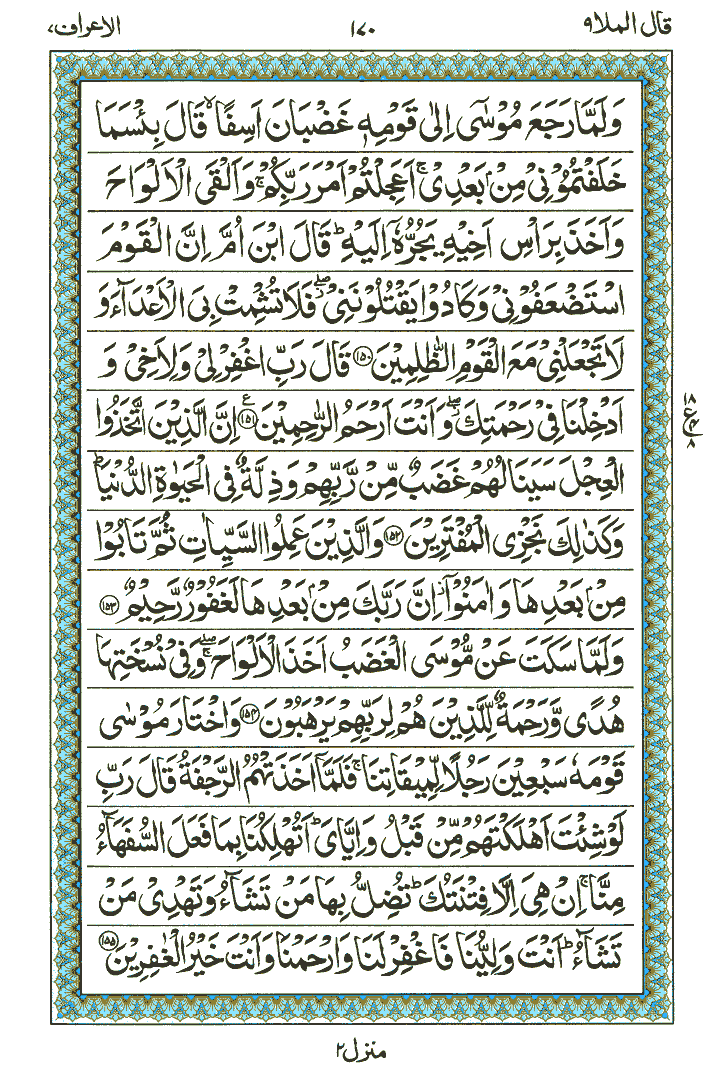 قال الملا ٩ ١٧٠ الاعراف ٧
وَلَمَّا رَجَعَ مُوْسٰۤى اِلٰى قَوْمِهٖ غَضْبَانَ اَسِفًا ۙ قَالَ بِئْسَمَا
خَلَفْتُمُوْنِیْ مِنْۢ بَعْدِیْ ۚ اَعَجِلْتُمْ اَمْرَ رَبِّكُمْ ۚ وَاَلْقَى الْاَلْوَاحَ
وَاَخَذَ بِرَاْسِ اَخِیْهِ یَجُرُّهٗۤ اِلَیْهِ ؕ قَالَ ابْنَ اُمَّ اِنَّ الْقَوْمَ
اسْتَضْعَفُوْنِیْ وَكَادُوْا یَقْتُلُوْنَنِیْ ۖ٘ فَلَا تُشْمِتْ بِیَ الْاَعْدَآءَ وَ
لَا تَجْعَلْنِیْ مَعَ الْقَوْمِ الظّٰلِمِیْنَ ۝١٥٠ قَالَ رَبِّ اغْفِرْ لِیْ وَلِاَخِیْ وَ
اَدْخِلْنَا فِیْ رَحْمَتِكَ ۖ٘ وَاَنْتَ اَرْحَمُ الرّٰحِمِیْنَ ۝١٥١ ع اِنَّ الَّذِیْنَ اتَّخَذُوا
١٨
ع ٤
٨
الْعِجْلَ سَیَنَالُهُمْ غَضَبٌ مِّنْ رَّبِّهِمْ وَذِلَّةٌ فِی الْحَیٰوةِ الدُّنْیَا ؕ
وَكَذٰلِكَ نَجْزِی الْمُفْتَرِیْنَ ۝١٥٢ وَالَّذِیْنَ عَمِلُوا السَّیِّاٰتِ ثُمَّ تَابُوْا
مِنْۢ بَعْدِهَا وَاٰمَنُوْۤا ۫ اِنَّ رَبَّكَ مِنْۢ بَعْدِهَا لَغَفُوْرٌ رَّحِیْمٌ ۝١٥٣
وَلَمَّا سَكَتَ عَنْ مُّوْسَى الْغَضَبُ اَخَذَ الْاَلْوَاحَ ۖۚ وَفِیْ نُسْخَتِهَا
هُدًى وَّرَحْمَةٌ لِّلَّذِیْنَ هُمْ لِرَبِّهِمْ یَرْهَبُوْنَ ۝١٥٤ وَاخْتَارَ مُوْسٰى
قَوْمَهٗ سَبْعِیْنَ رَجُلًا لِّمِیْقَاتِنَا ۚ فَلَمَّاۤ اَخَذَتْهُمُ الرَّجْفَةُ قَالَ رَبِّ
لَوْ شِئْتَ اَهْلَكْتَهُمْ مِّنْ قَبْلُ وَاِیَّایَ ؕ اَتُهْلِكُنَا بِمَا فَعَلَ السُّفَهَآءُ
مِنَّا ۚ اِنْ هِیَ اِلَّا فِتْنَتُكَ ؕ تُضِلُّ بِهَا مَنْ تَشَآءُ وَتَهْدِیْ مَنْ
تَشَآءُ ؕ اَنْتَ وَلِیُّنَا فَاغْفِرْ لَنَا وَارْحَمْنَا وَاَنْتَ خَیْرُ الْغٰفِرِیْنَ ۝١٥٥
منزل ٢